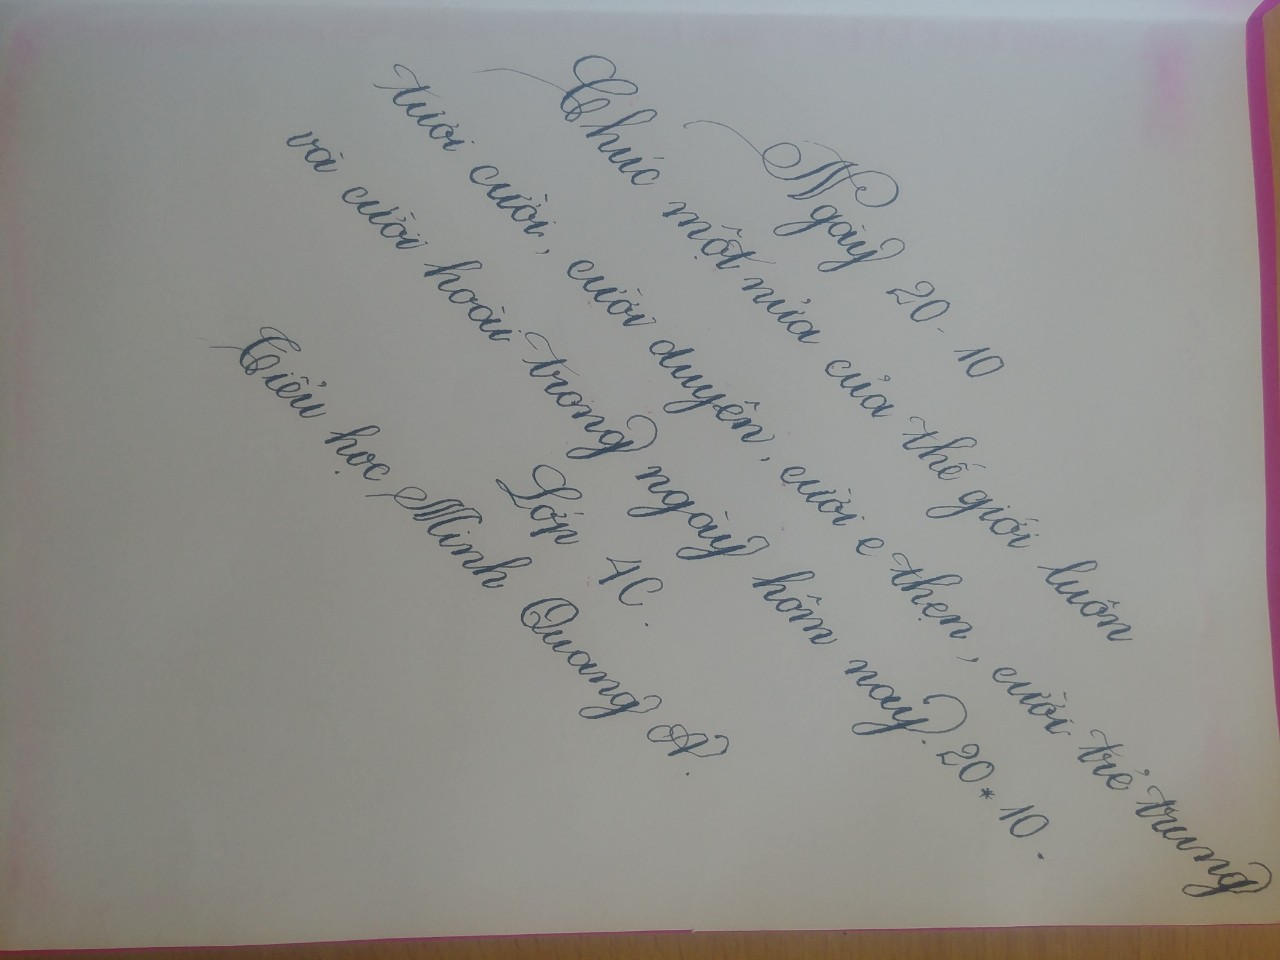 Ngày 20 - 10
Chúc một nửa của thế giới luôn
tươi cười, cười duyên, cười e thẹn, cười trẻ trung
và cười hoài trong ngày hôm nay. 20*10.
Lớp 4C.
Tiểu học Minh Quang A.